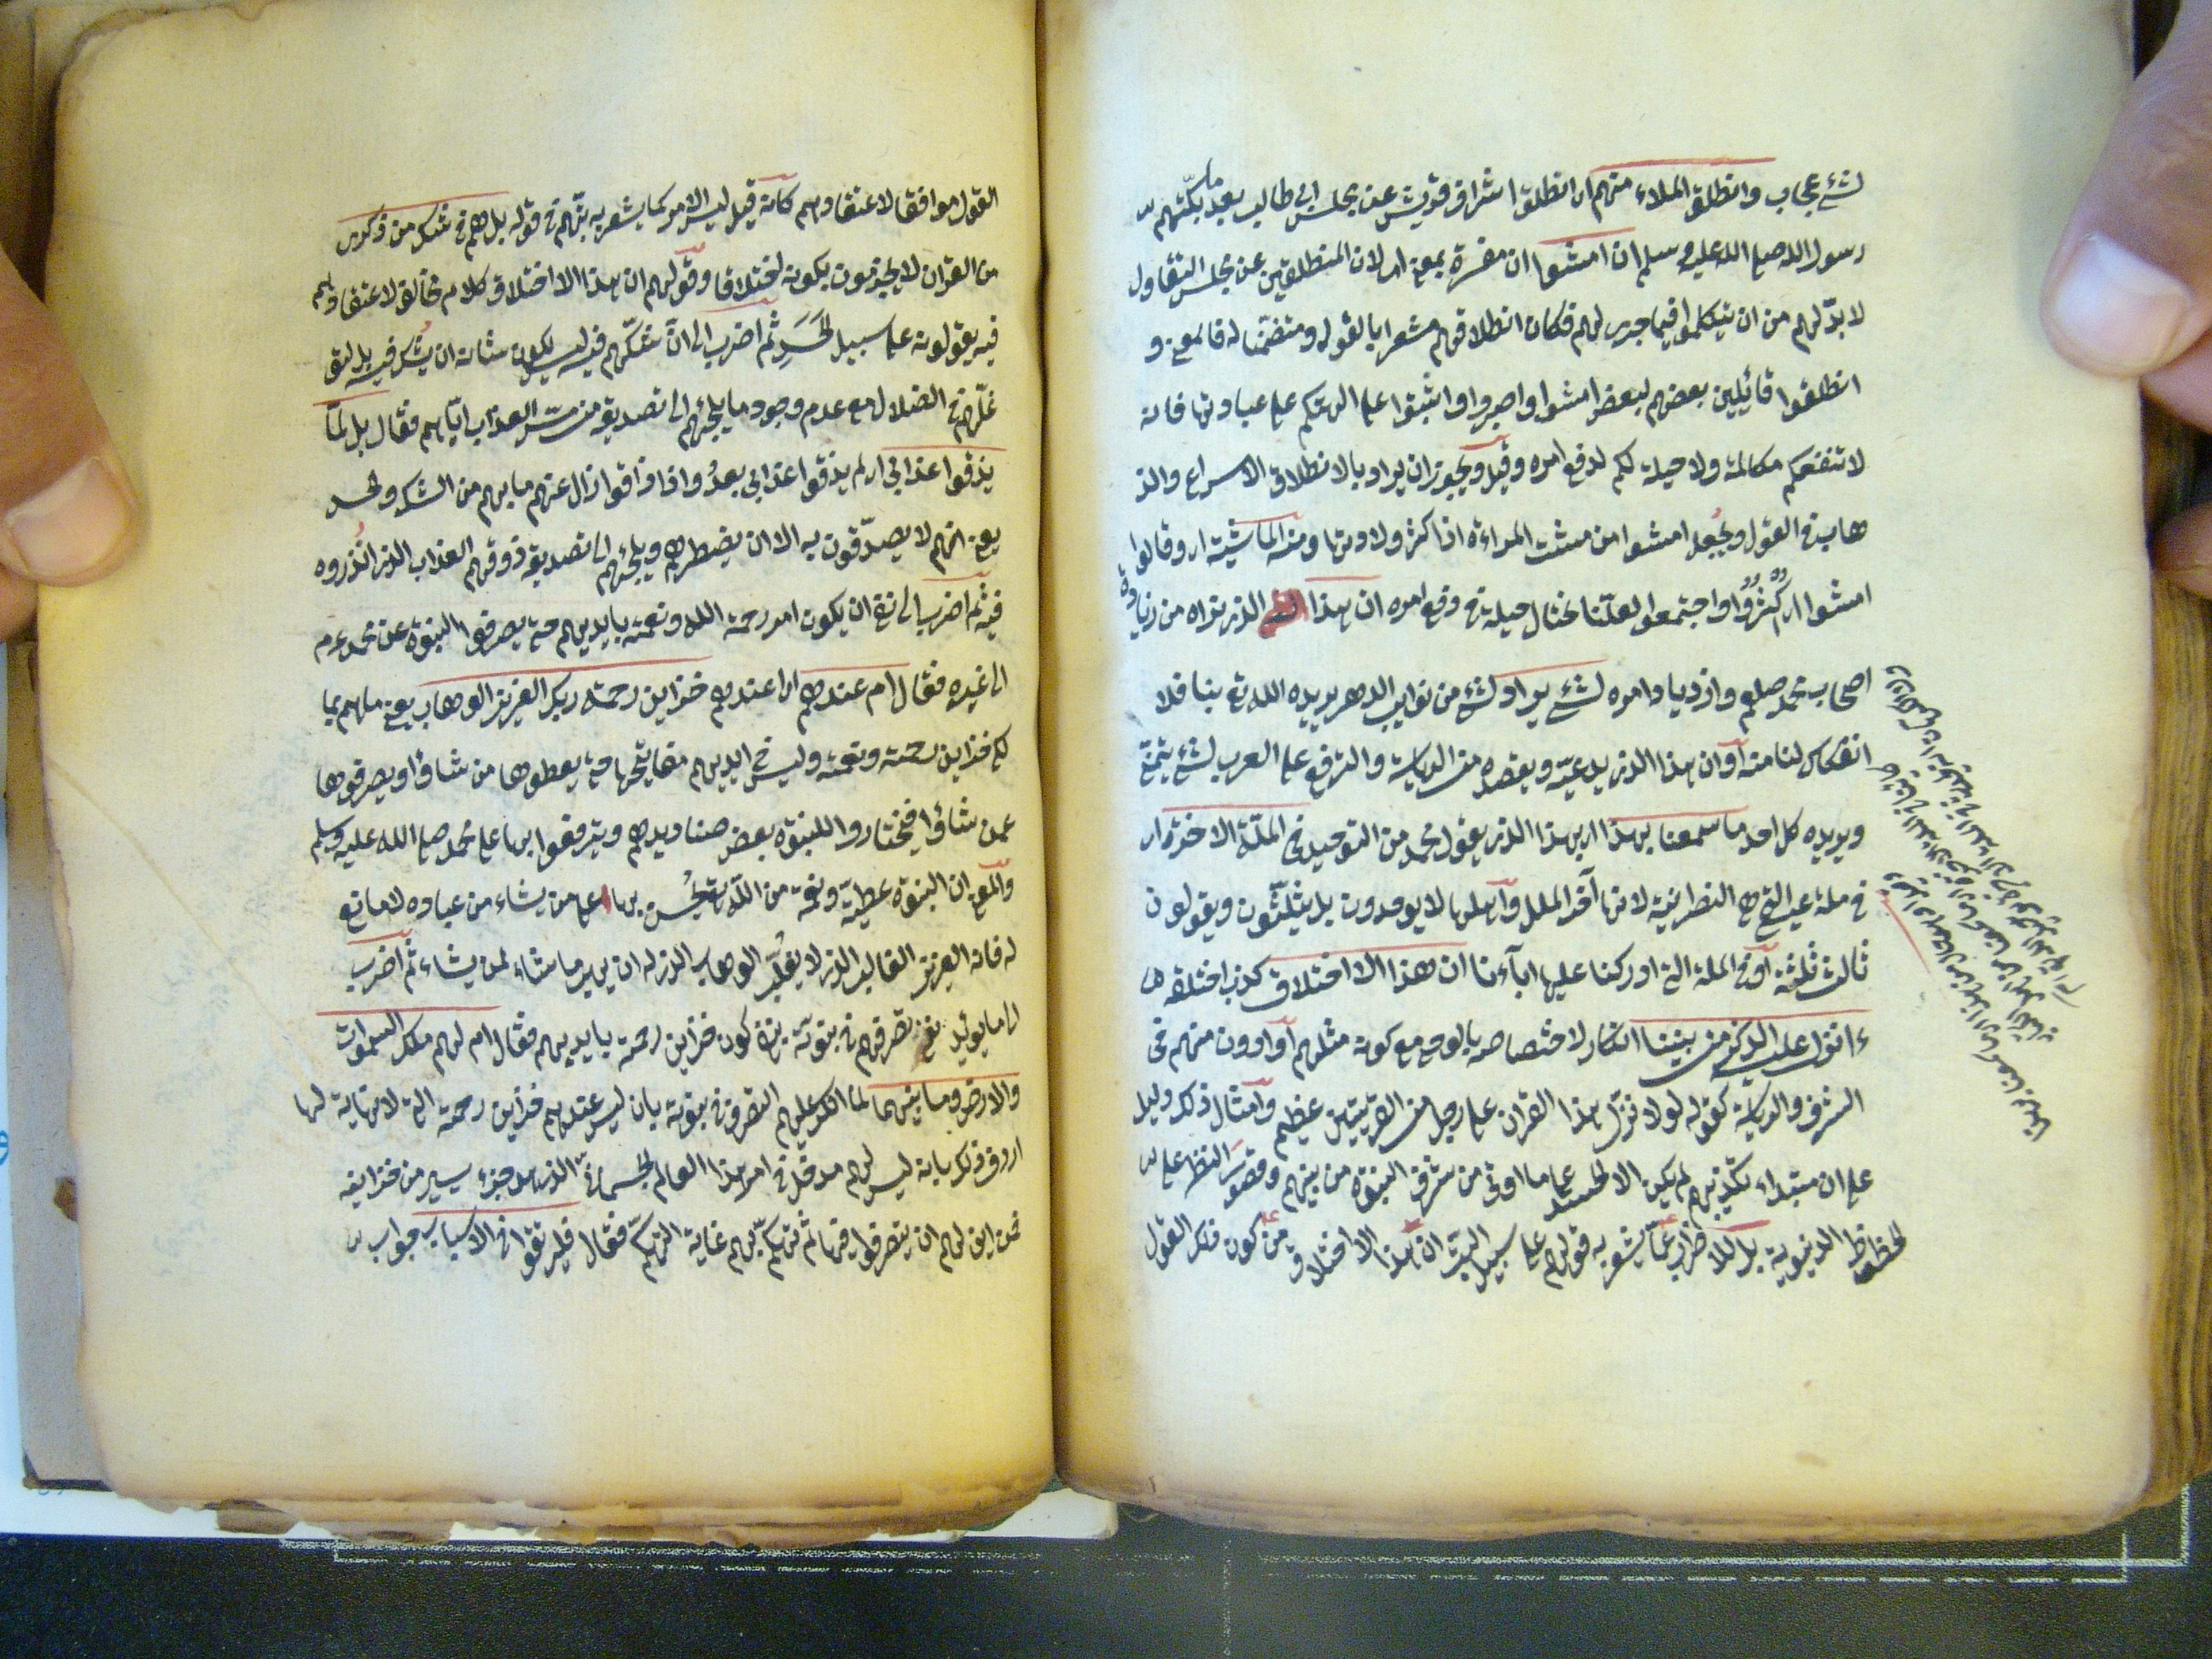 لشئ عجاب وانطلق الملاء منهم اى انطلق اشراف قريش عن مجلس ابى طالب بعد ما بكّتهم
رسول الله صلى الله عليه وسلم ان امشوا ان مفسرة بمعنى اى لان المنطلقين عن مجلس التقاول
لا بدّ لهم من ان يتكلموا فيما جرى لهم فكان انطلاقهم مشعرا بالقول ومتضمّنا له فالمعنى و
انطلقوا قائلين بعضهم لبعض امشوا واصبروا واثبتوا على الهتكم على عبادتها فانه
لا تنفعكم مكالمة ولا حيلة لكم لدفع امره وقيل ويجوز ان يراد بالانطلاق الاسراع والذ
هاب فى القول ويجعل امشوا من مشت المراءة اذا كثر ولادتها ومنه الماشية اى وقالوا
امشوا اى كُثُرُوا واجتمعوا لعلّنا نحتال حيلة فى دفع امره ان هذا الذى نراه من زيادة
اصحاب محمد صلعم وازدياد امره لشئ يراد لشئ من نوايب الدهر يريده الله تع بنا فلا
انفكاك لنا منه آو ان هذا الذى يدعيّه ويقصده من الرياسة والترفع على العرب لشئ يتمنّى
ويريده كل احد ما سمعنا بهذا اى بهذا الذى يقول محمد من التوحيد فى الملّة الاخرة اى
فى ملة عيسى التى هى النصرانية لانها آخر الملل وآهلها لا يوحدون بل يثلّثون ويقولون
ثالث ثلثة آو فى الملة التى ادركنا عليها ابآءنا ان هذا الا اختلاق كذب اختلقه
ءانزل عليه الذكر من بيننا انكار لاختصاصه بالوحى مع كونه مثلهم آو ادون منهم فى
الشرف والرياسة كقوله لولا نزل هذا القران على رجل من القريتين عظيم وآمثال ذلك دليل
على ان مبتداء تكذيبهم لم يكن الا الحسد على ما اوتى من شرف النبوة من بينهم وقصور النظر على
الحظاظ الدنيوية بل للاضراب عمّا يشعر به قولهم على سبيل البتّ ان هذا الا اختلاق من كون ذلك القول
القول موافقا لاعتقادهم كانه قيل ليس الامر كما يشعر به بتّهم فى قوله بل هم فى شك من ذكرى
من القران لا يجزمون بكونه اختلاقا وقولهم ان هذا الا اختلاق كلام مخالف لاعتقادهم
فيه يقولونه على سبيل الحسد ثم اضرب الى انّ شكّهم فيه ليس لكون شانه ان يُشك فيه بل لتو
غلّهم فى الضلال مع عدم وجود ما يلجئهم الى تصديقه من مسّ العذاب ايّاهم فقال بل لمّا
يذوقوا عذابى اى لم يذوقوا عذابى بعدُ واذا ذاقوا زال عنهم ما بهم من الشك والحسد
يعنى انهم لا يصدّقون به الا ان يضطرهم ويلجئهم الى تصديقه ذوقهم العذاب الذى انذروه
فيه ثم اضرب الى نفى ان يكون امر رحمة الله ونعمته بايديهم حتى يصرفوا النبوة عن محمد عم
الى غيره فقال ام عندهم اى اعندهم خزاين رحمة ربك العزيز الوهاب يعنى ما هم بما
لكى خزاين رحمته ونعمته وليس فى ايديهم مفاتيحها حتى يعطوها من شاؤا ويصرفوها
عمن شاؤا فيختاروا للنبوة بعض صناديدهم ويترفعوا بها على محمد صلى الله عليه وسلم
والمعنى ان النبوة عطيّة ونعمة من الله تع يحسن بها على من يشاء من عباده لا مانع
له فانه العزيز الغالب الذى لا يغلّب الوهاب الذى له ان يهب ما شاء لمن يشاء ثم اضرب
الى ما يؤيد نفى تصرفهم فى نبوّته بنفى كون خزاين رحمة بايديهم فقال ام لهم ملك السموات
والارض وما بينهما لما انكر عليهم التصرف فى نبوته بان ليس عندهم خزاين رحمة التى لا نهاية لها
اردف ذلك بانه ليس لهم مدخل فى امر هذا العالم الجسمانى الذى هو جزء يسير من خزاينه
فمن اين لهم ان يتصرفوا فيها ثم تهكّم بهم غاية التهكّم فقال فليرتقوا فى الاسباب جواب